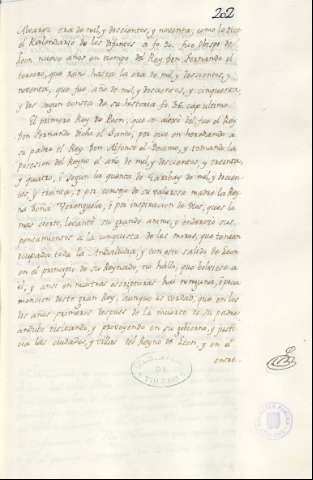 202
Alvarez era de mil, y doscientos, y noventa, como lo dice
el Kalendario de los Difuntos a fo 30. fue Obispo de
Leon nueve años en tiempo del Rey don Fernando el
tercero, que Reinó hasta la era de mil, y doscientos, y
noventa, que fue año de mil, y doscientos, y cinquenta,
y dos segun consta de su historia fo 36. cap. ultimo.
El primero Rey de Leon, que se alzó del, fue el Rey
don Fernando dicho el Santo, por que en heredando a
su padre el Rey don Alfonso el Decimo, y tomando la
posesion del reyno el año de mil, y doscientos, y treinta,
y quatro, o segun la quenta de Garibay de mil, y doscien-
tos, y treinta, o por consejo de su valerosa madre la Rey-
na Doña Berenguela, o por inspiracion de Dios, que es lo
mas cierto, levantó su grande animo, y enderezó sus
pensamientos a la conquista de los moros, que tenian
ocupada toda la Andalucia, y con esto salido de Leon
en el principio de su Reynado, no hallo, que bolviese a
el, y aun en nuestras escripturas hay ninguna, o poca
mencion deste gran Rey, aunque es verdad, que en los
dos años primeros despues de la muerte de su padre
anduvo visitando, y proveyendo en su gobierno, y justi-
cia las ciudades, y villas del Reyno de Leon, y en el
entre-